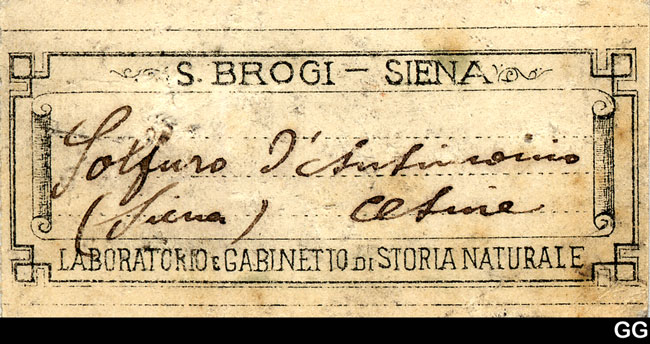 S. BROGI – SIENA
Solfuro d'Antimonio
(Siena) Cetine
LABORATORIO E GABINETTO DI STORIA NATURALE
GG